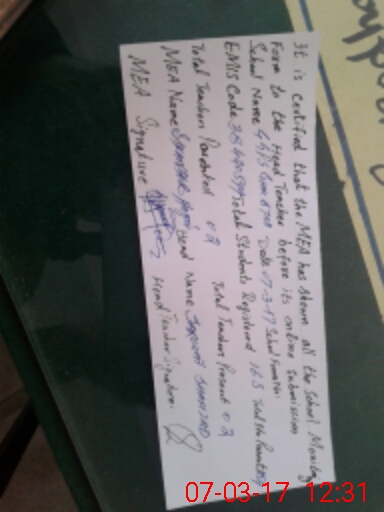 It is certified that the MEA has shown all the School Monitoring
Form to the Head Teacher before its online submission
School Name Date 07-03-17 School Form No:
EMIS Code Total Students Registered 165 Total Std Present
Total Teachers Posted 02 Total Teachers Present 02
MEA Name Head Name SHAHZAD
MEA Signature Head Teacher Signature:
07-03-17 12:31